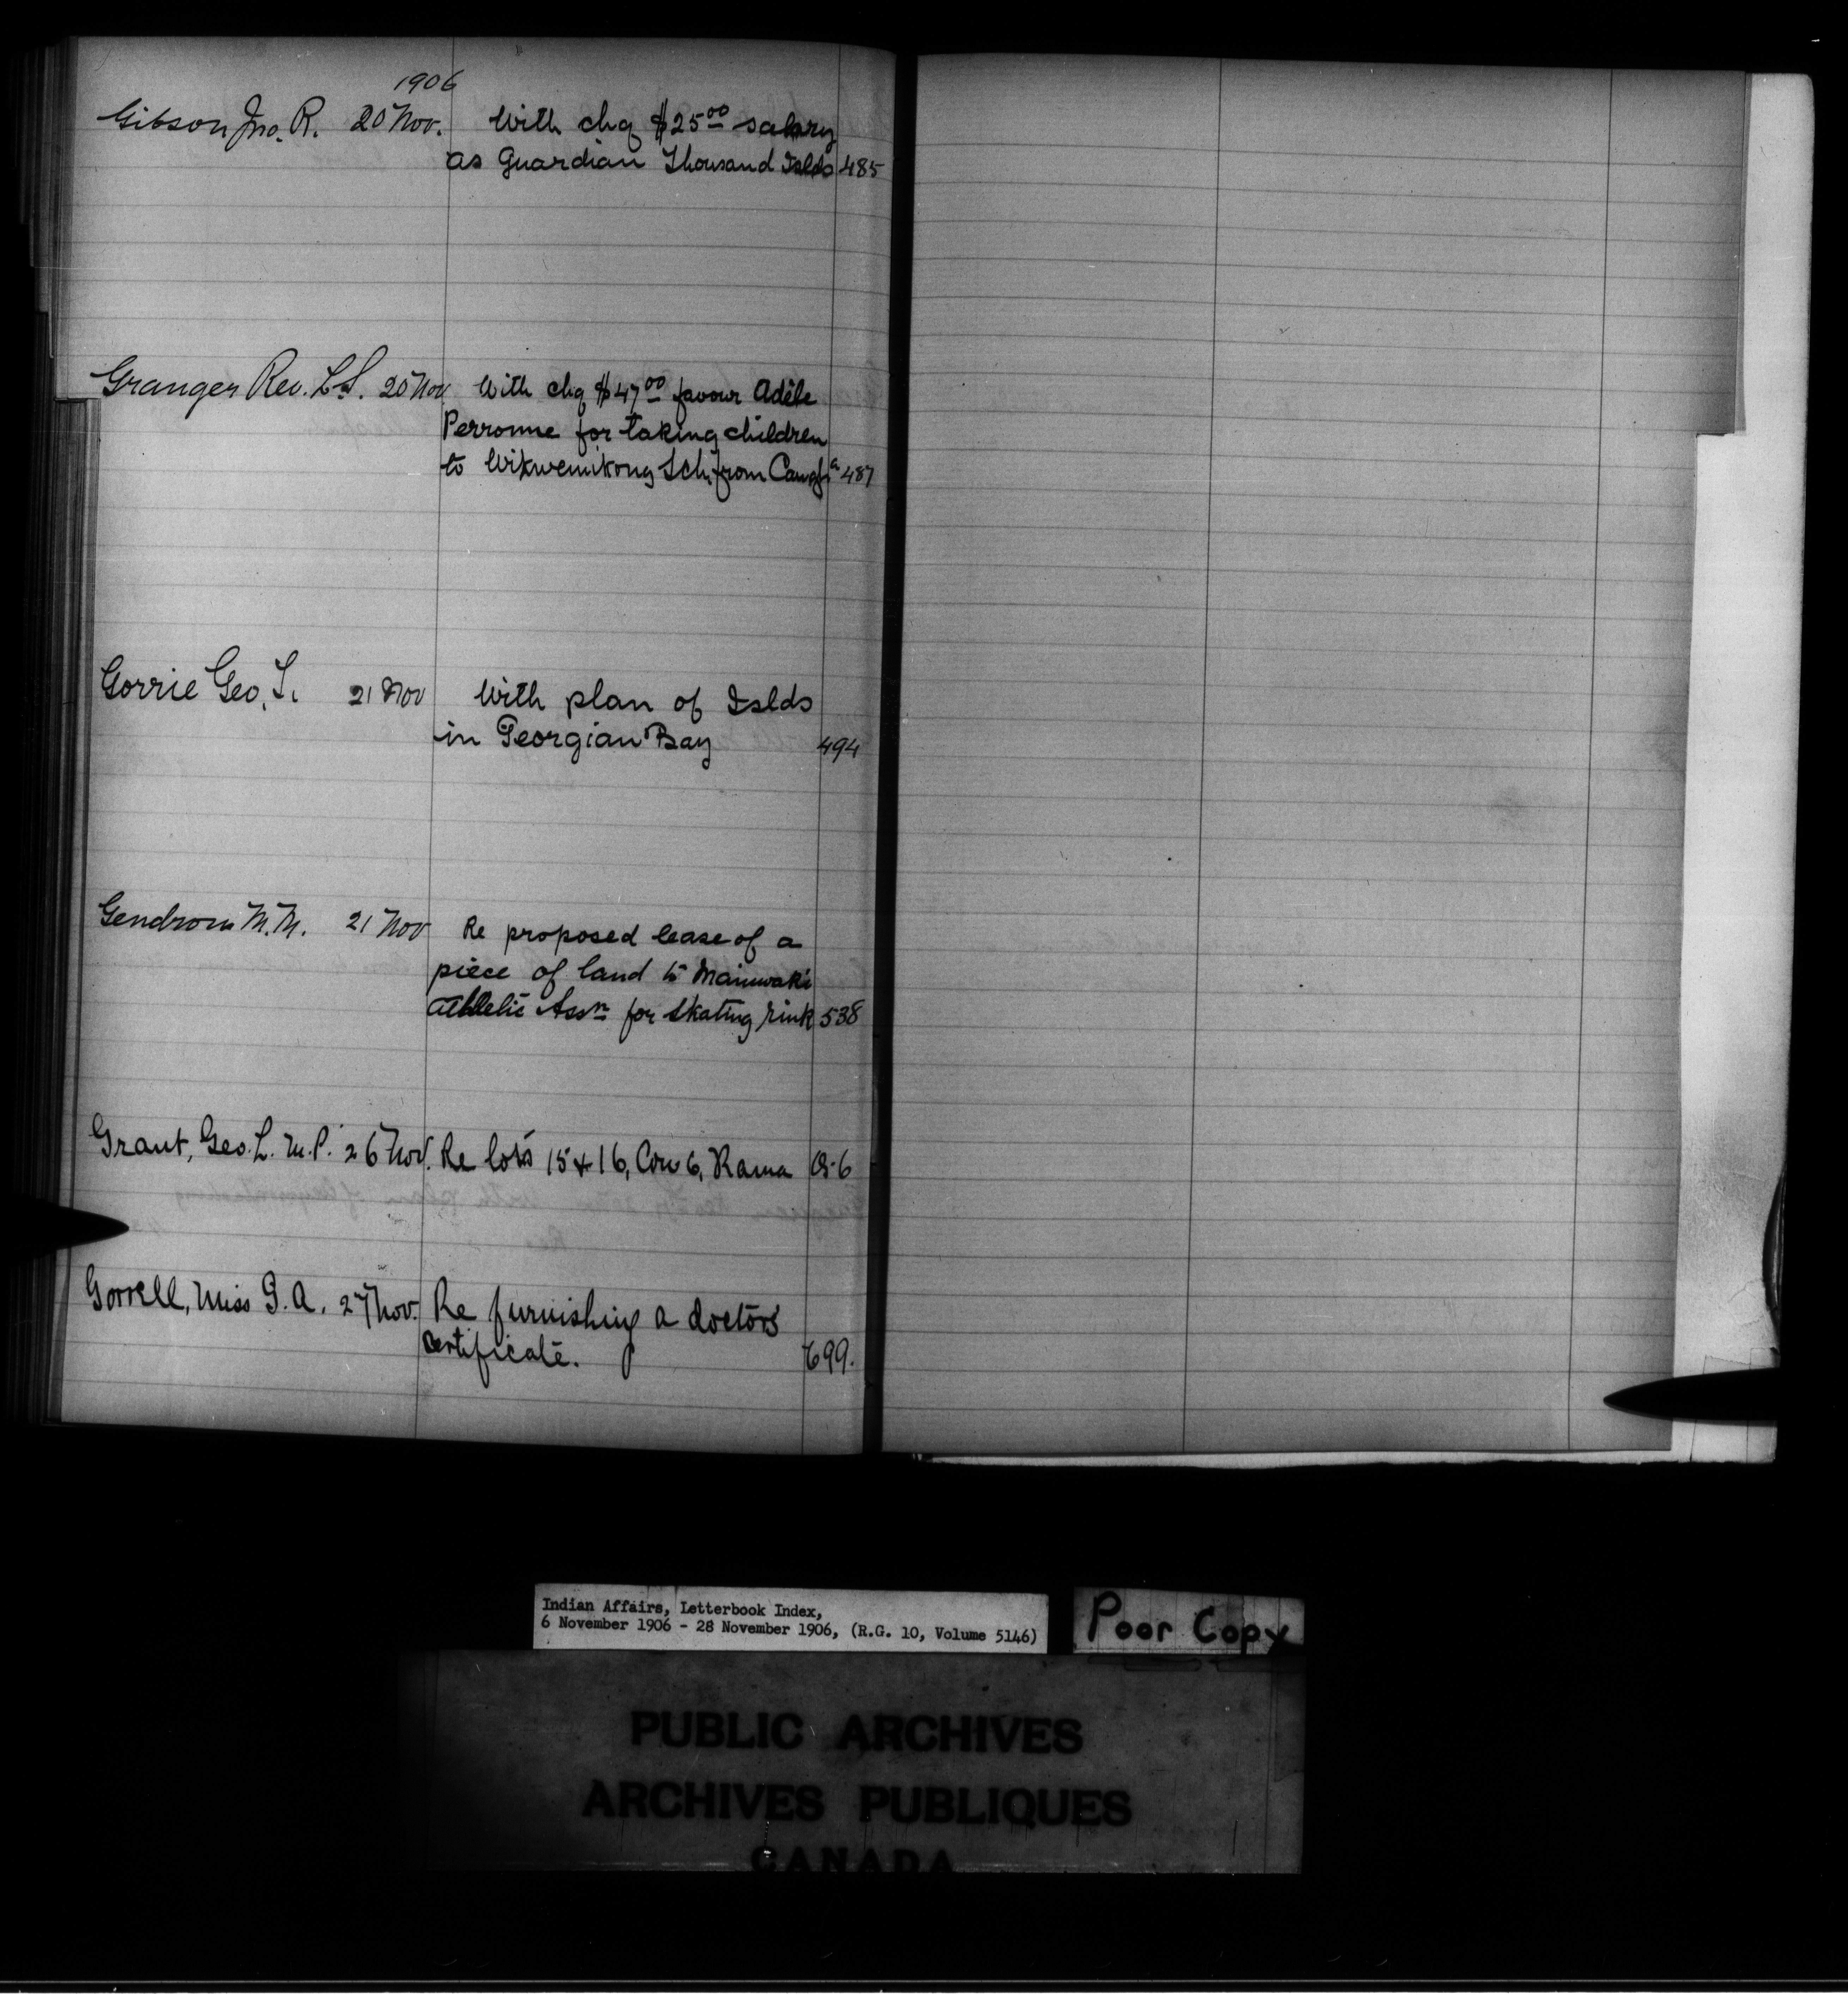 1906
Gibson Jno. R. 20 Nov. With chq $25.00 salary
as Guardian Thousand Islds 485
Granger Rev. L.S. 20 Nov With chq $47.00 favour Adèle
Perronne for taking children
to Wikwemikong Sch. from 487
Gorrie Geo. T. 21 Nov With plan of Islds
in Georgian Bay 494
Gendron M.M. 21 Nov Re proposed lease of a
piece of land to Maniwaki
Athletic Assn for skating rink 538
Grant, Geo. L. M.P. 26 Nov. Re lots 15 & 16, Con 6, Rama
Gorrell, Miss G. A. 27 Nov. Re furnishing a doctors
certificate. 699.
Indian Affairs, Letterbook Index,
6 November 1906 - 28 November 1906, (R.G. 10, Volume 5146)
Poor Copy
PUBLIC ARCHIVES
ARCHIVES PUBLIQUES
CANADA